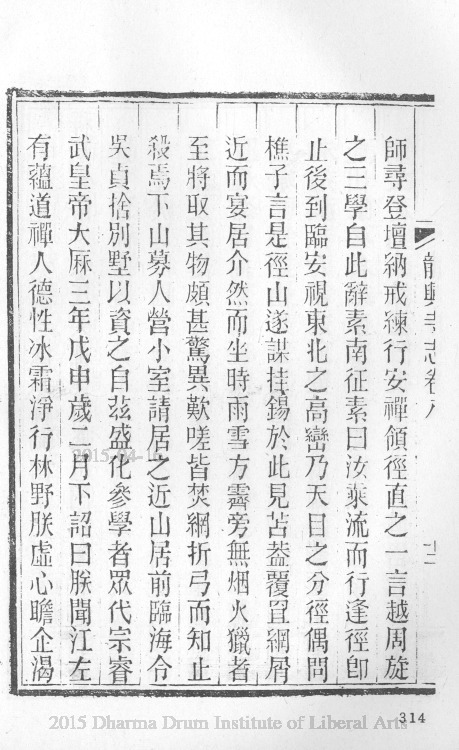 師尋登壇納戒練行安禪領徑直之一言越周旋
之三學自此辭素南征素曰汝乘流而行逢徑即
止後到臨安視東北之高巒乃天目之分徑偶問
樵子言是徑山遂謀挂錫於此見苫蓋覆罝網屑
近而宴居介然而坐時雨雪方霽旁無烟火獵者
至將取其物頗甚驚異歎嗟皆焚網折弓而知止
殺焉下山募人營小室請居之近山居前臨海令
吳貞捨別墅以資之自茲盛化參學者眾代宗睿
武皇帝大厤三年戊申歲二月下詔曰朕聞江左
有蘊道禪人德性冰霜淨行林野朕虛心瞻企渴
龍興寺志卷八
十二
314
2015-04-16
2015 Dharma Drum Institute of Liberal Arts